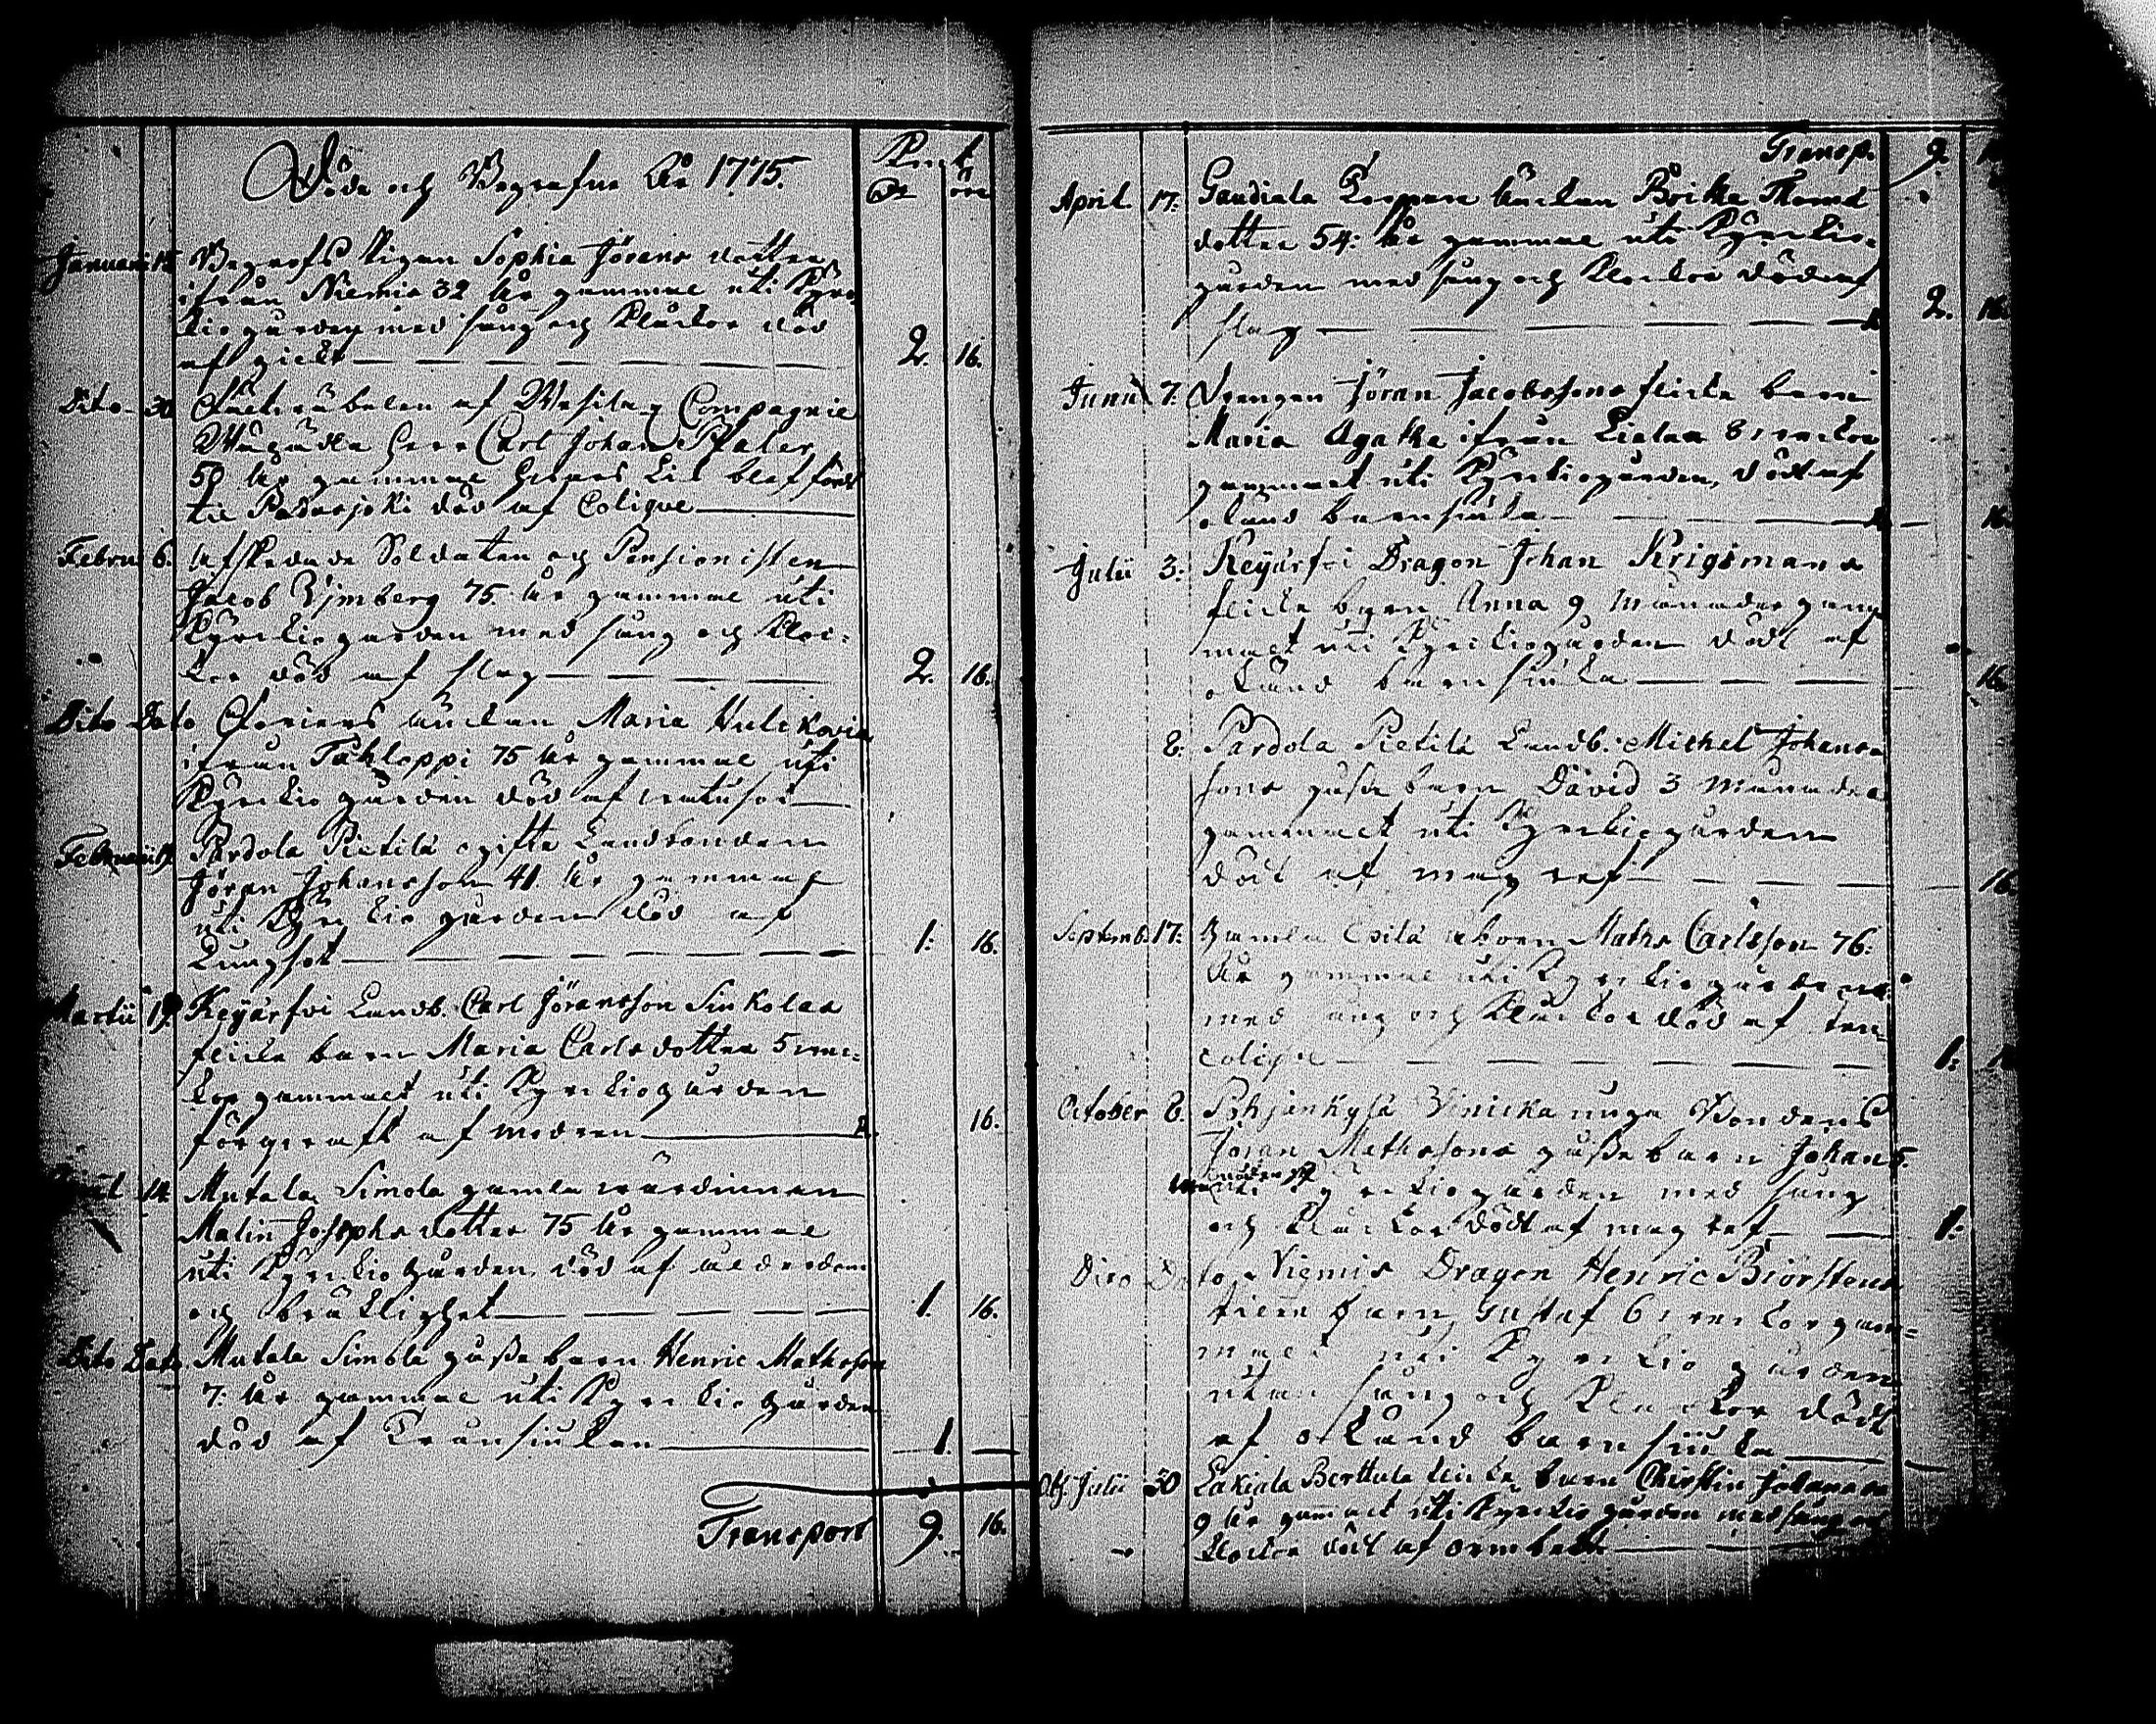 Döde och Begrafne År 1775.
Pengt
Dr öre
Januarii 15 Begrofs Pigan Sophia Jörans dotter
ifrån Niemis 32 År gammal uti Kyr
kiogården med sång och klåckor död
af gickt 2. 16.
Dito 30 Fält af Wesilax Compagnie
Herr Carl Johan Pfaler
58 År gammal hvars Lik blef fördt
til Padasjoki död af Colique
Febru 6. Afskedade Soldaten och Pensionisten
Jacob 75. År gammal uti
Kyrckiogården med sång och kloc-
kor död af slag 2. 16.
Dito Dato Enckan Maria
ifrån Tahloppi 75 År gammal uti
Kyrckiogården död af
Februarii Pärdola Pietilä ogifta Landbonden
Jöran Johansson 41. År gammal
uti Kyrckiogården död af
Lungsot 1: 16.
Martii 19. Keyärfvi Landb. Carl Jöransson Sinkolas
flicke barn Maria Carls dotter 5 vec-
kor gammalt uti Kyrckiogården
förqvaft af modren 16.
April 14 Mutala Simola gamla värdinnan
Malin Josephs dotter 75 År gammal
uti Kyrckiogården död af ålderdom
och bräcklighet 1. 16.
Dito Dato Mutala Simola gosse barn Henric Mathsson
7: År gammal uti Kyrckiogården
död af 1.
Transport 9. 16.
Transp. 9.
April 17: Gaudiala Enckan Britha Thomæ
dotter 54: År gammal uti Kyrckio-
gården med sång och klockor död af
slag 2. 16.
Junii 7: Drengen Jöran Jacobssons flicke barn
Maria Agatha ifrån 8 veckor
gammalt uti Kyrckiogården, död af
okänd barnsiuka 16.
Julii 3: Keyärfvi Dragon Johan Krigsmans
flicke barn Anna 9 månader gam
malt uti Kyrckiogården dödt af
okänd barnsiuka 16.
8. Pärdola Pietilä Landb. Michel Johans-
sons gosse barn David 3 månader
gammalt uti Kyrckiogården
dödt af mag ref 16.
Septemb: 17: Gamla Maths Carlsson 76:
År gammal uti Kyrckiogården
med sång och klåckor död af sten
colique 1:
October 8. Pohjankylä unga Bondens
Jöran Mathssons gosse barn Johan 5.
månader uti Kyrckiogården med sång
och klåckor dödt af mag ref 1:
Dito Dato Niemis Dragon Henric Biörstens
barn Gustaf 6 veckor gam-
malt uti Kyrckiogården
utan sång och klåckor dödt
af okänd barnsiuka
Obs. Julii 30 Lakiala Berttula flicke barn Christin Johans
9 År gammalt uti Kyrckiogården med sång och
klockor dödt af